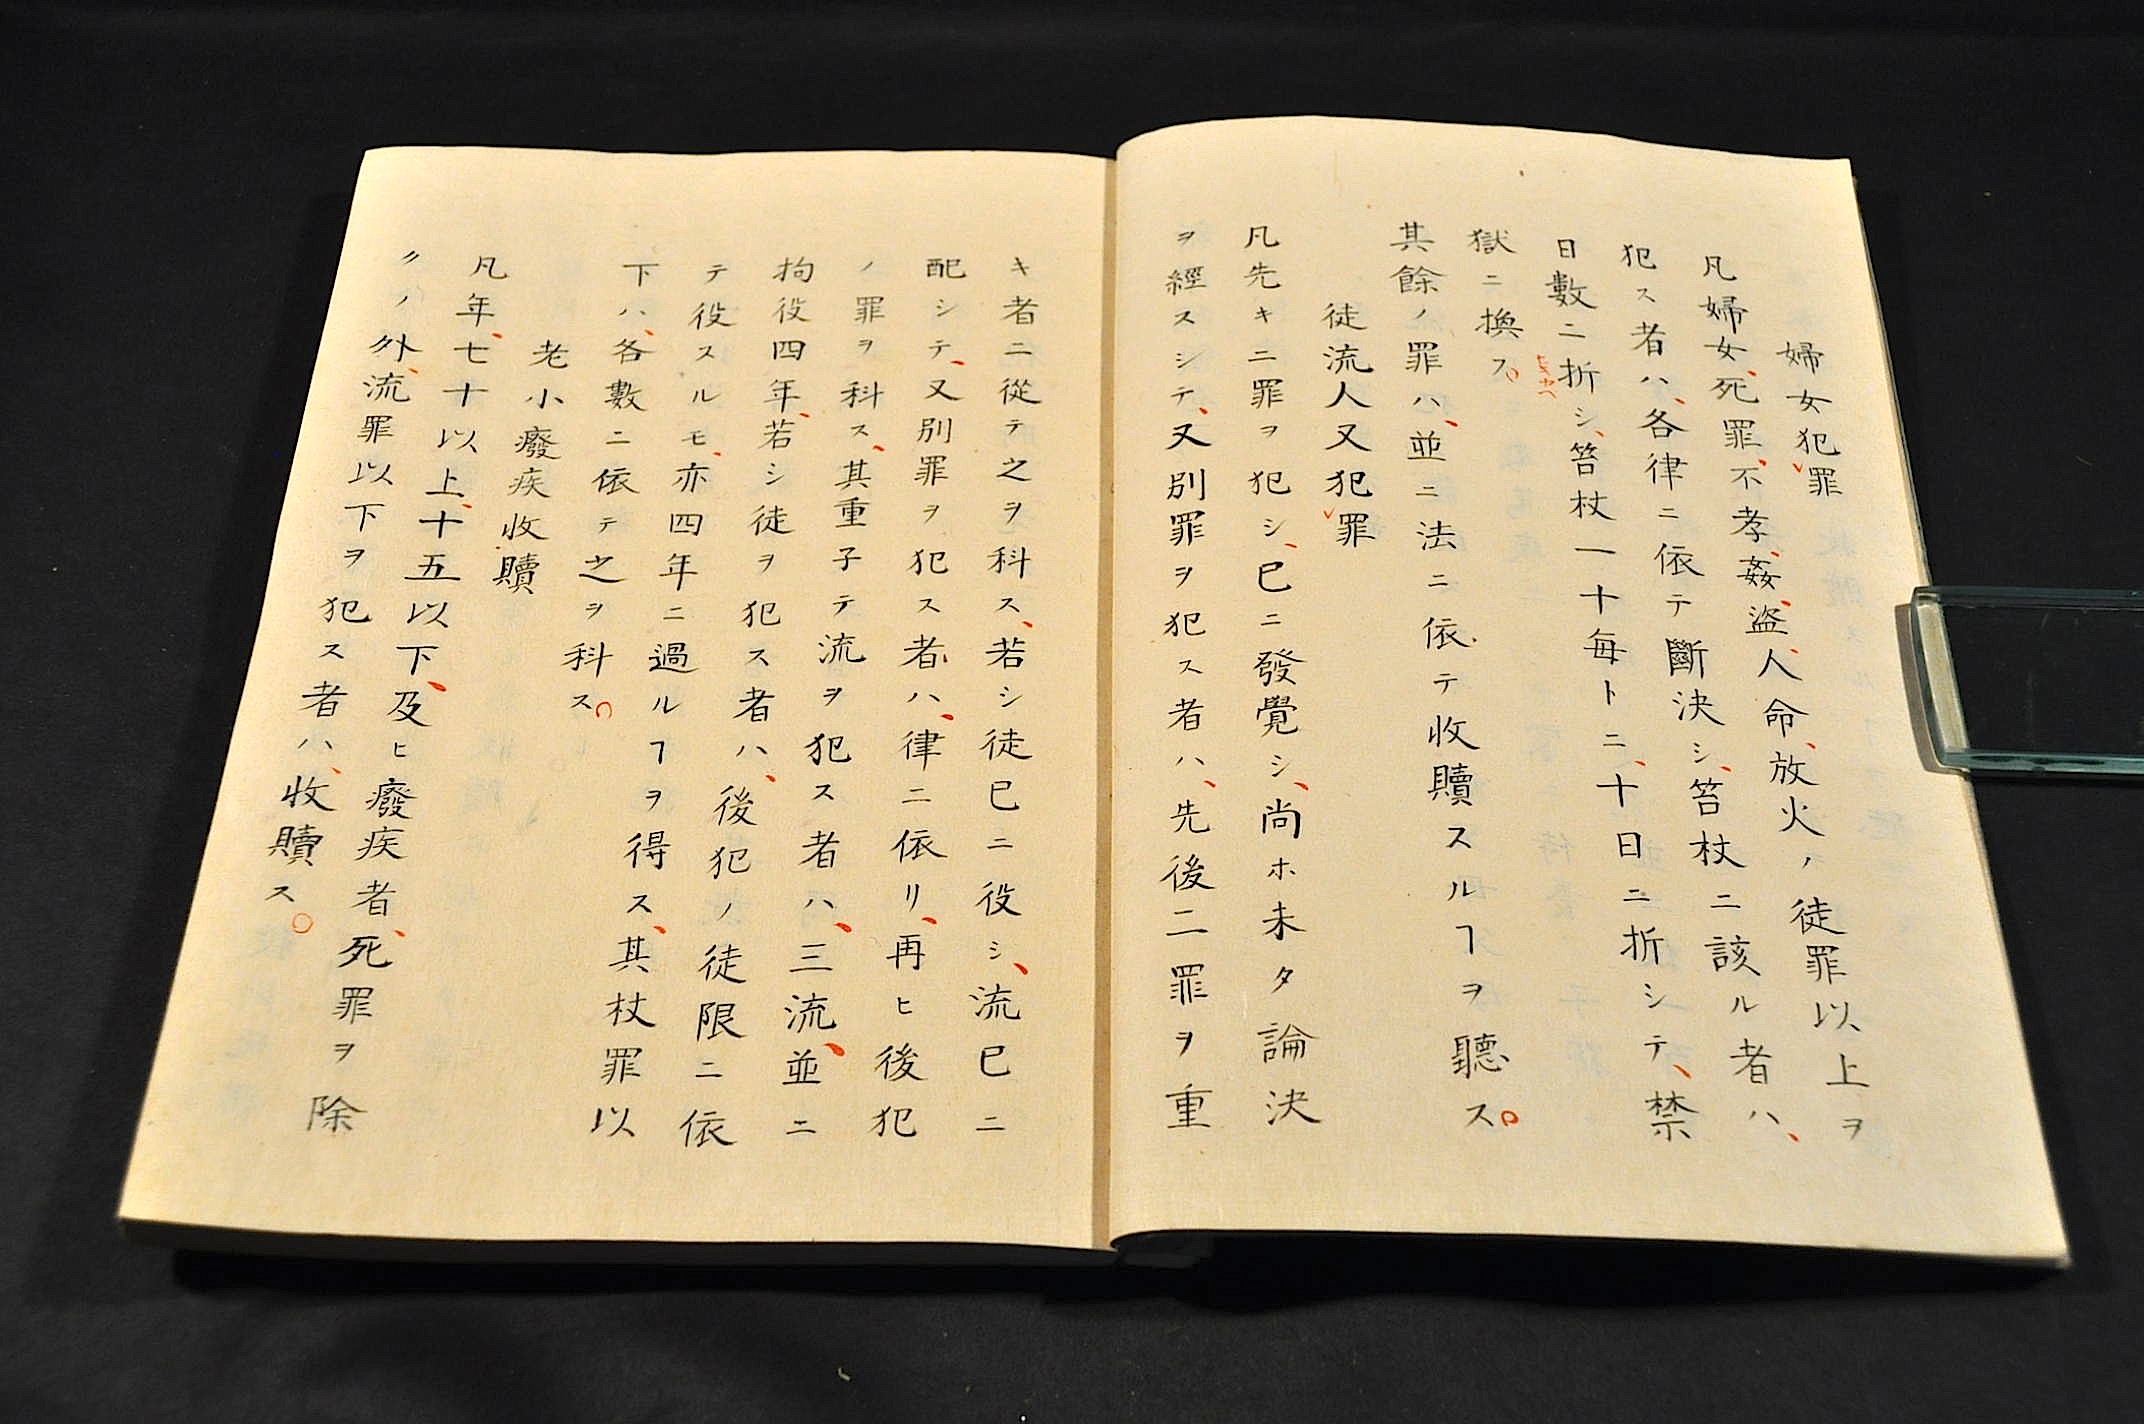 婦女犯罪
凡婦女、死罪、不孝、姦、盜、人命、放火ノ徒罪以上ヲ
犯ス者ハ、各律ニ依テ斷決シ、笞杖ニ該ル者ハ、
日數ニ折シ、笞杖一十每トニ、十日ニ折シテ、禁
獄ニ換ス。
其餘ノ罪ハ、並ニ法ニ依テ收贖スルヿヲ聽ス。
徒流人又犯罪
凡先キニ罪ヲ犯シ、已ニ發覺シ、尚ホ未タ論決
ヲ經スシテ、又別罪ヲ犯ス者ハ、先後二罪ヲ重
キ者ニ從テ之ヲ科ス、若シ徒已ニ役シ、流已ニ
配シテ、又別罪ヲ犯ス者ハ、律ニ依リ、再ヒ後犯
ノ罪ヲ科ス、其重子テ流ヲ犯ス者ハ、三流、並ニ
拘役四年、若シ徒ヲ犯ス者ハ、後犯ノ徒限ニ依
テ役スルモ、亦四年ニ過ルヿヲ得ス、其杖罪以
下ハ、各數ニ依テ之ヲ科ス。
老小廢疾收贖
凡年、七十以上、十五以下、及ヒ廢疾者、死罪ヲ除
クノ外、流罪以下ヲ犯ス者ハ、收贖ス。